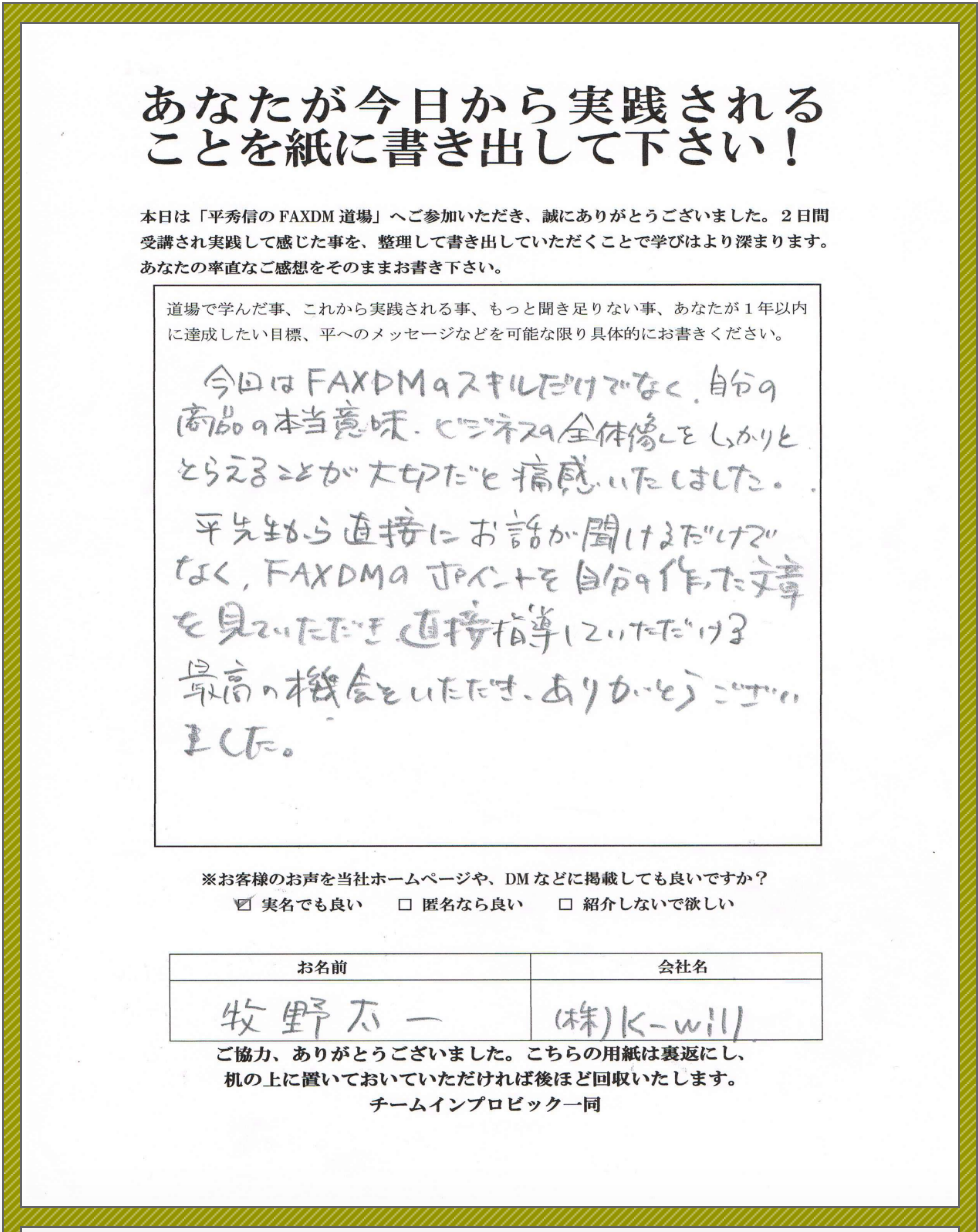 あなたが今日から実践される
ことを紙に書き出して下さい！
本日は「平秀信の FAXDM 道場」へご参加いただき、誠にありがとうございました。２日間
受講され実践して感じた事を、整理して書き出していただくことで学びはより深まります。
あなたの率直なご感想をそのままお書き下さい。
道場で学んだ事、これから実践される事、もっと聞き足りない事、あなたが１年以内
に達成したい目標、平へのメッセージなどを可能な限り具体的にお書きください。
今回はFAXDMのスキルだけでなく、自分の
商品の本当意味、ビジネスの全体像しをしっかりと
とらえることが大切だと痛感いたしました。
平先生から直接にお話が聞けるだけで
なく、FAXDMのポイントを自分の作った文章
を見ていただき直接指導していただける
最高の機会をいただき、ありがとうござい
ました。
※お客様のお声を当社ホームページや、DM などに掲載しても良いですか？
☑ 実名でも良い　□ 匿名なら良い　□ 紹介しないで欲しい
お名前　会社名
牧野太一　(株)K-will
ご協力、ありがとうございました。こちらの用紙は裏返にし、
机の上に置いておいていただければ後ほど回収いたします。
チームインプロビック一同